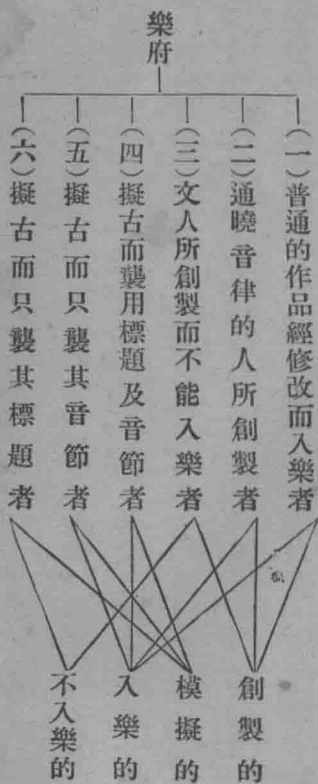 樂府
（一）普通的作品經修改而入樂者
（二）通曉音律的人所創製者
（三）文人所創製而不能入樂者
（四）擬古而襲用標題及音節者
（五）擬古而只襲其音節者
（六）擬古而只襲其標題者
創製的
模擬的
入樂的
不入樂的